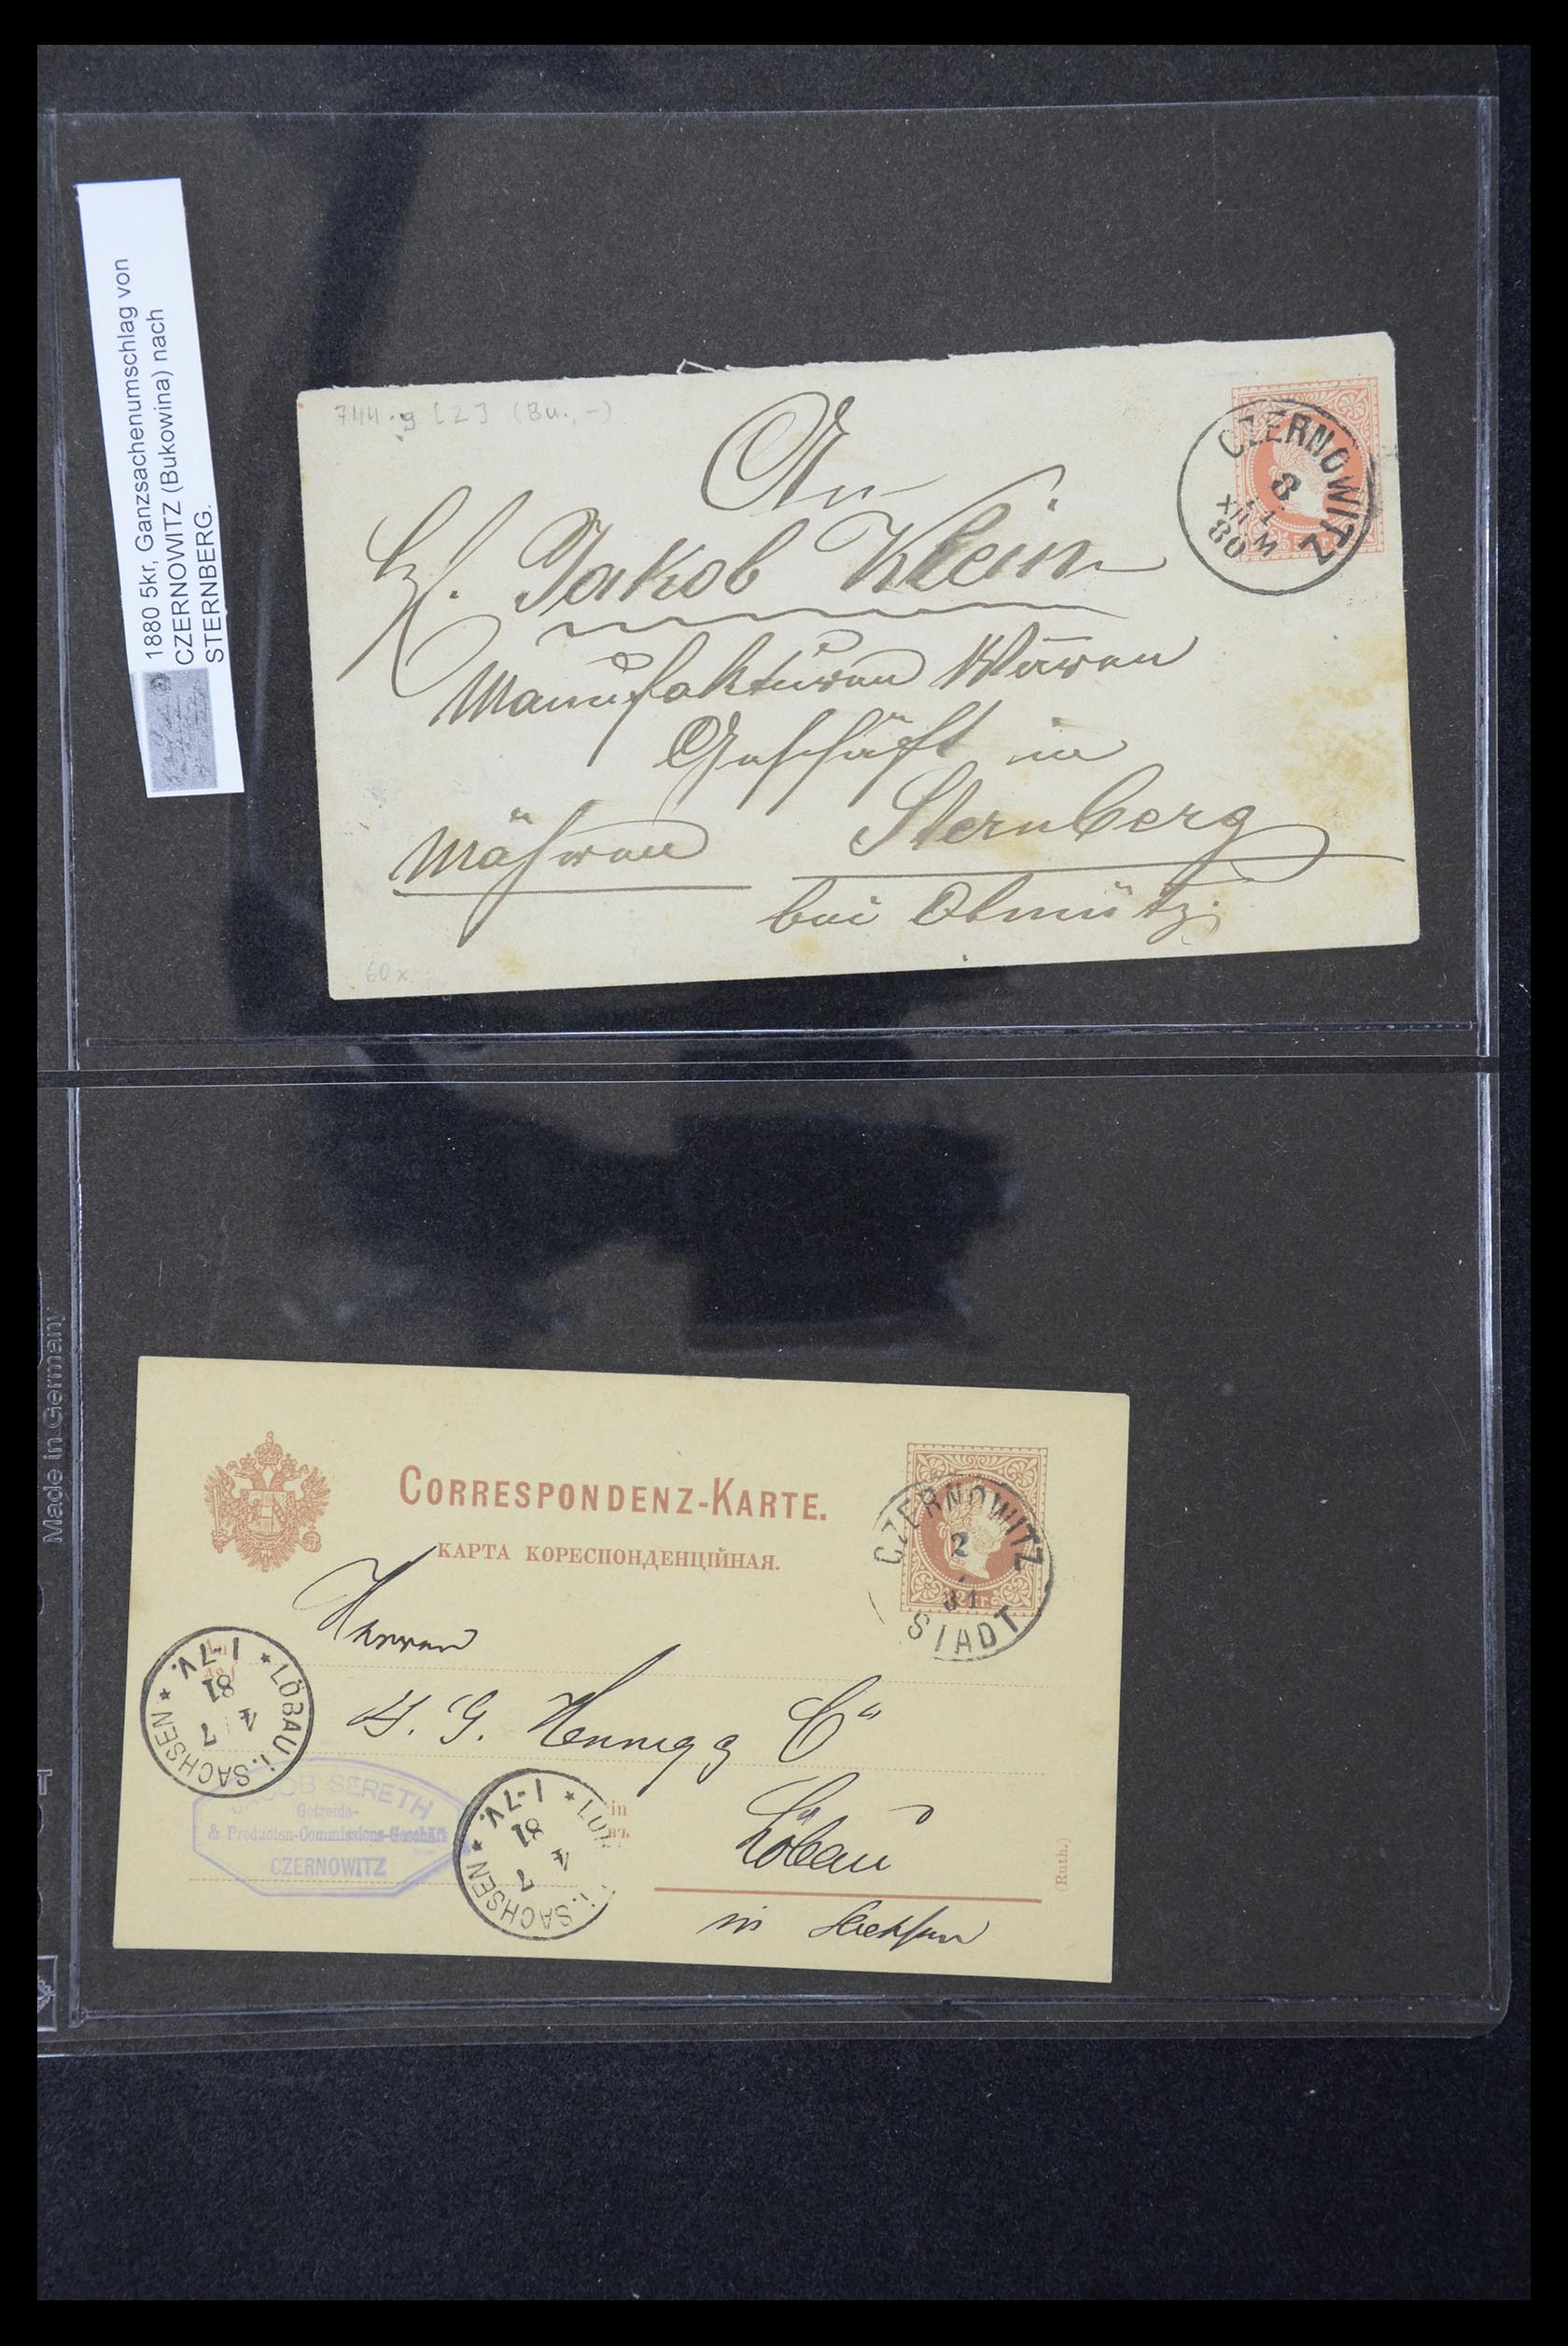 1880 5kr, Ganzsachenumschlag von
CZERNOWITZ (Bukowina) nach
STERNBERG.
744.g [2] (Bu., -)
An
Jakob Klein
Manufakturen Waren
Geschäft in
Mähren Sternberg
bei Olmütz
60x
CZERNOWITZ
8
XII
80
Made in Germany
CORRESPONDENZ-KARTE.
КАРТА КОРЕСПОНДЕНЦІЙНАЯ.
CZERNOWITZ
2
81
STADT
2 kr.
Herren
G. Hennig & Co
Löbau
in Sachsen
in
въ
(Ruth.)
LÖBAU i. SACHSEN
1-7V.
81
4 7
JACOB SERETH
Getreide-
& Producten-Commissions-Geschäft
CZERNOWITZ
i. SACHSEN
1-7V.
81
4
7